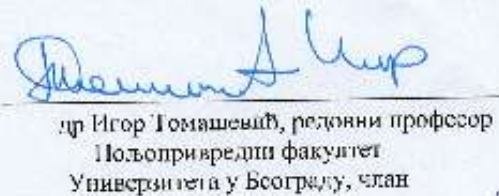 др Игор Томашевић, редовни професор
Пољопривредни факултет
Универзитета у Београду, члан